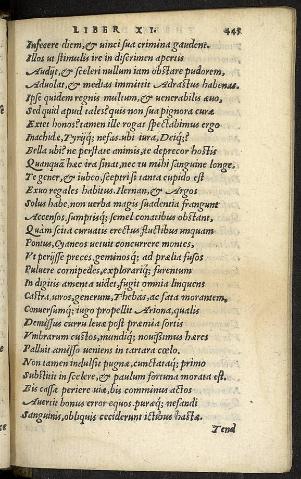 LIBER XI. 445
Infecere diem, & uinci sua crimina gaudent.
Illos ut stimulis ire in discrimen apertis
Audijt, & sceleri nullum iam obstare pudorem,
Aduolat, & medias immittit Adrastus habenas.
Ipse quidem regnis multum, & uenerabilis æuo,
Sed quid apud tales? quis non sua pignora curæ
Exet honos? tamen ille rogat spectabimus ergo
Inachidæ, Tyrijq; nefas. ubi iura, Deiq;?
Bella ubi? ne perstate animis, te deprecor hostis
Quanquã hæc ira sinat, nec tu mihi sanguine longe.
Te gener, & iubeo, sceptri si tanta cupido est
Exuo regales habitus. I lernan, & Argos
Solus habe, non uerba magis suadentia frangunt
Accensos, sumptisq; semel conatibus obstant,
Quam scita curuatis erectus fluctibus unquam
Pontus, Cyaneos uetuit concurrere montes,
Vt perijsse preces, geminosq; ad prælia fusos
Puluere cornipedes, explorariq; furentum
In digitis amenta uidet, fugit omnia linquens
Castra, uiros, generum, Thebas, ac fata morantem,
Conuersumq; iugo propellit Ariona, qualis
Demissus curru leuæ post præmia sortis
Vmbrarum custos, mundiq; nouissimus hæres
Palluit amisso ueniens in tartara cœlo.
Non tamen indulsit pugnæ, cunctataq; primo
Substitit in scelere, & paulum fortuna morata est.
Bis cassæ periere uiæ, bis comminus actos
Auertit bonus error equos, puræq; nefandi
Sanguinis, obliquis ceciderunt ictibus hastæ.
Tend